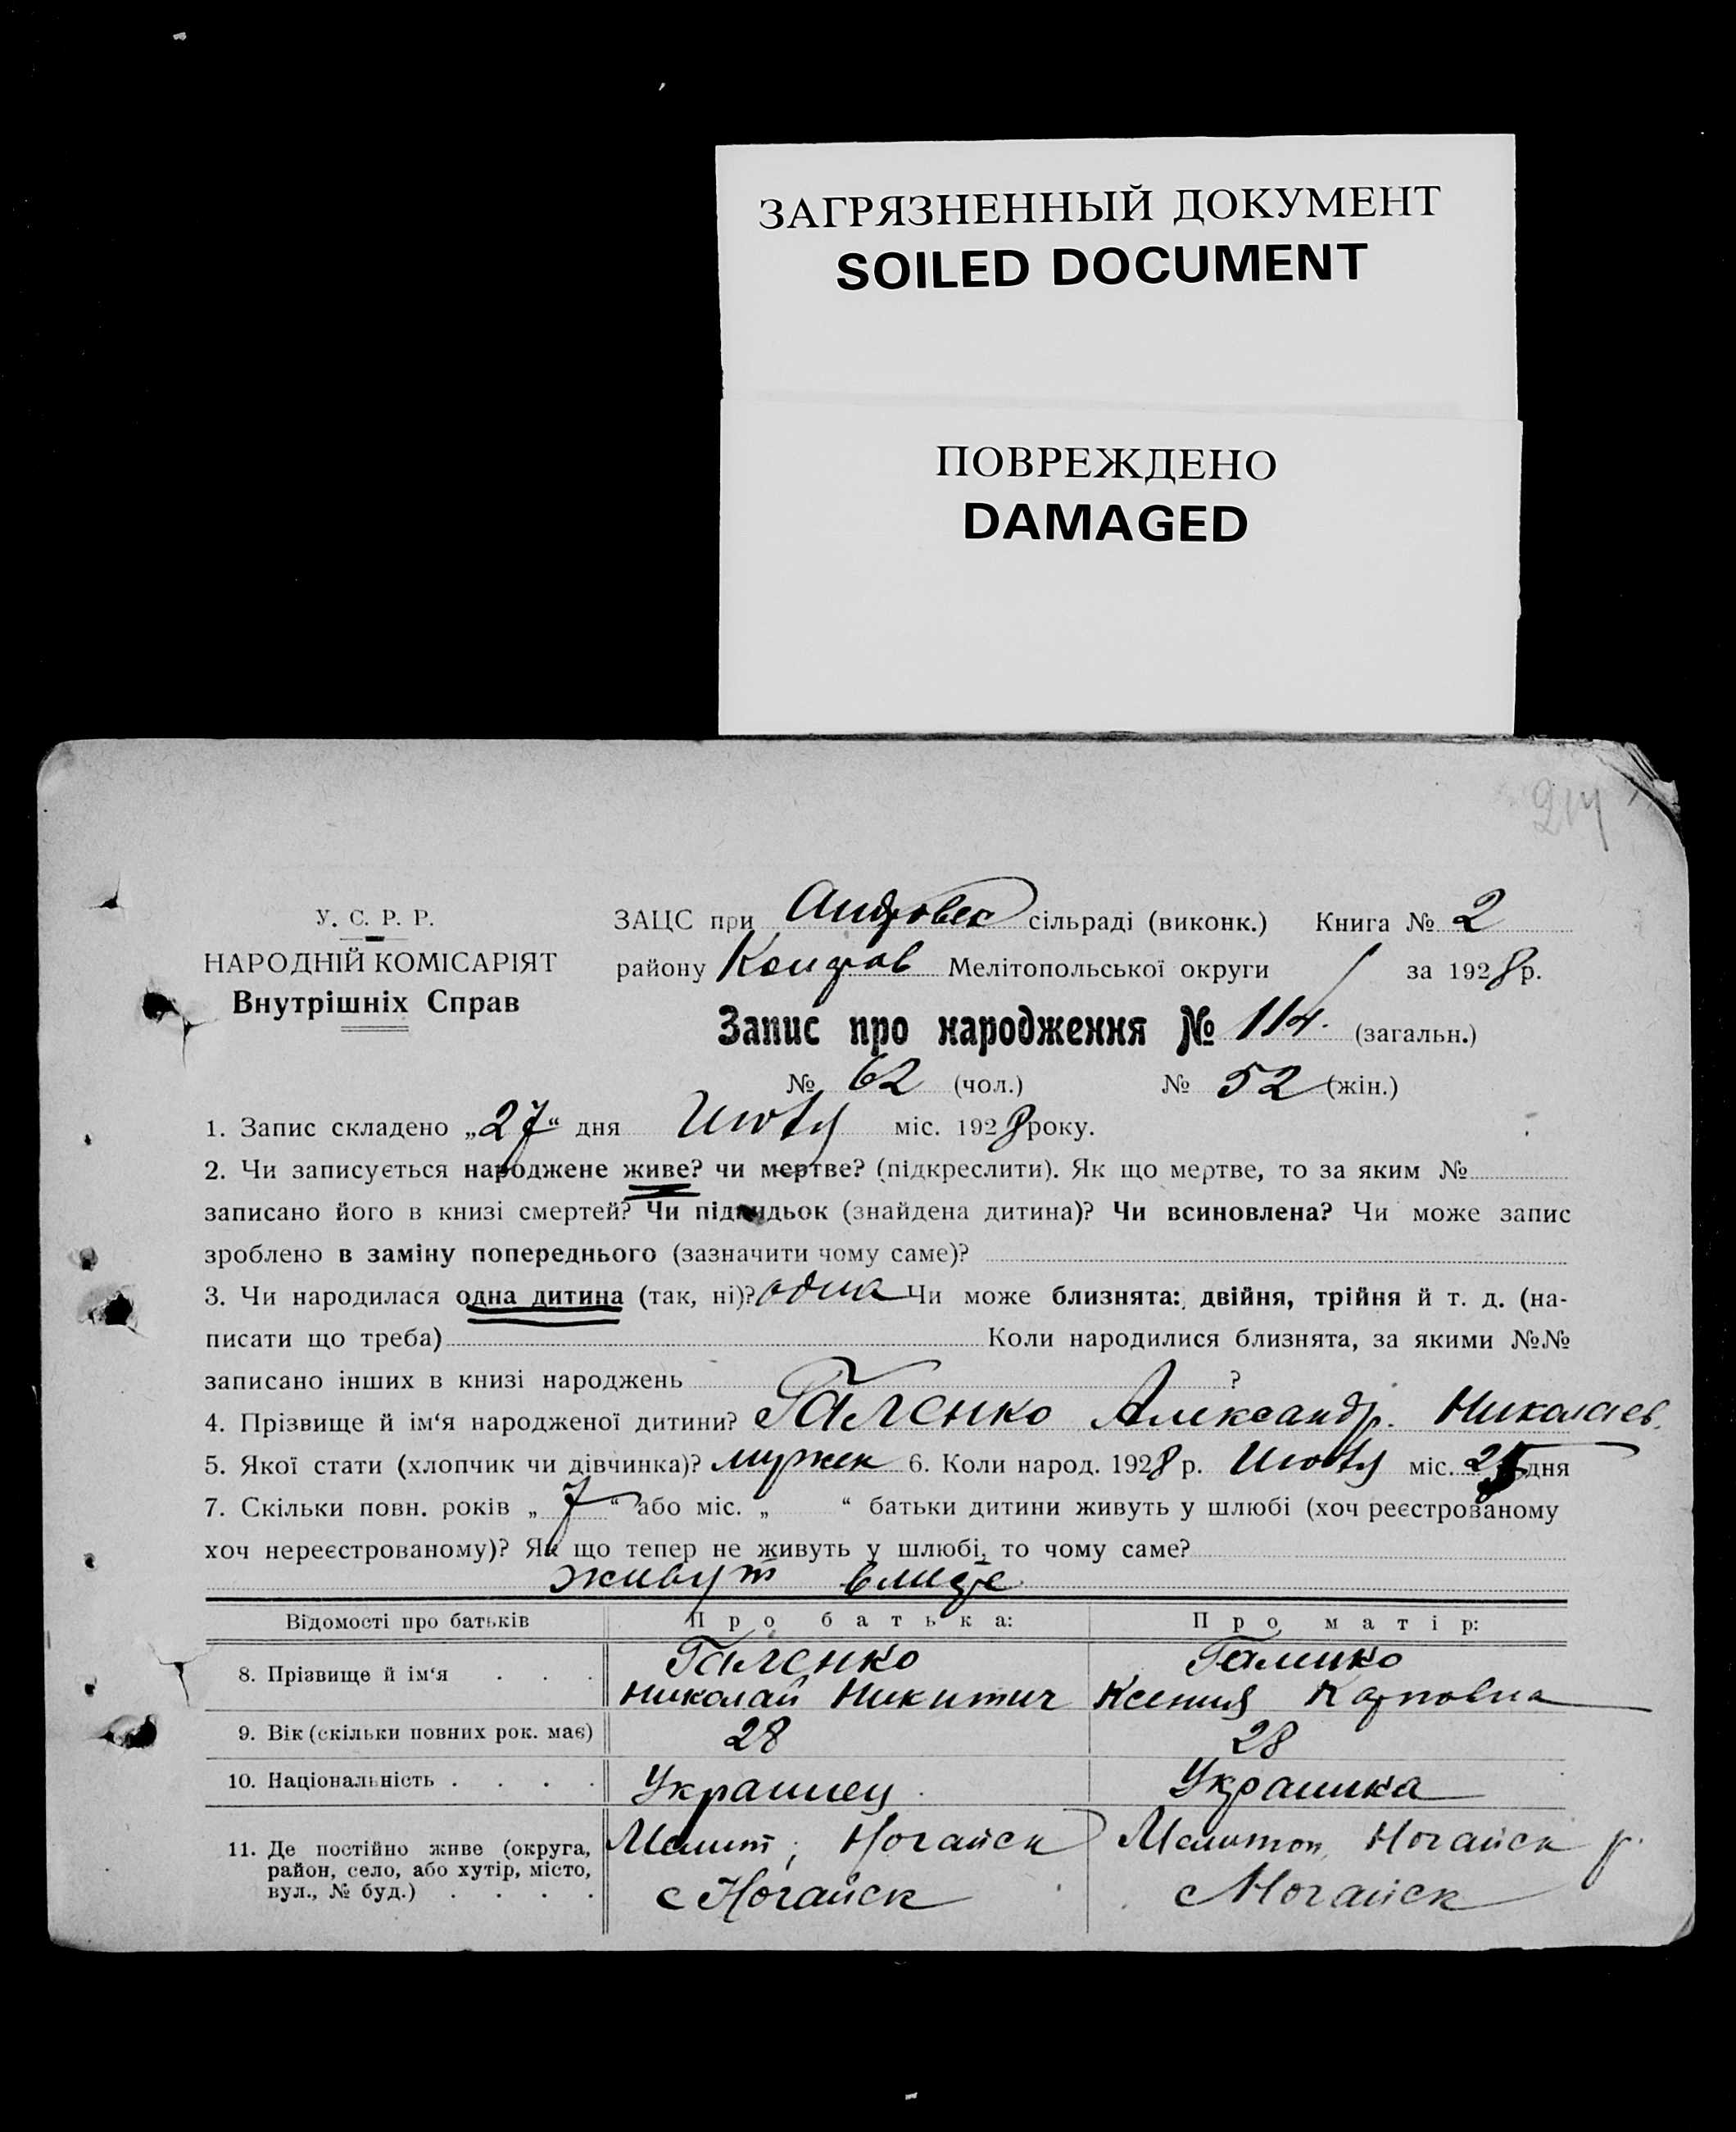 ЗАГРЯЗНЕННЫЙ ДОКУМЕНТ
SOILED DOCUMENT
ПОВРЕЖДЕНО
DAMAGED
У. С. Р. Р.
НАРОДНІЙ КОМІСАРІЯТ
Внутрішніх Справ
ЗАЦС при Андровск сільраді (виконк.) Книга № 2
району Мелітопольської округи за 1928 р.
Запис про народження № 114. (загальн.)
№ 62 (чол.) № 52 (жін.)
1. Запис складено „27“ дня міс. 1928 року.
2. Чи записується народжене живе? чи мертве? (підкреслити). Як що мертве, то за яким №
записано його в книзі смертей? Чи підкидьок (знайдена дитина)? Чи всиновлена? Чи може запис
зроблено в заміну попереднього (зазначити чому саме)?
3. Чи народилася одна дитина (так, ні)? одна Чи може близнята: двійня, трійня й т. д. (на-
писати що треба) Коли народилися близнята, за якими №№
записано інших в книзі народжень ?
4. Прізвище й ім‘я народженої дитини? Галенко Александр. Николаев.
5. Якої стати (хлопчик чи дівчинка)? мужск 6. Коли народ. 1928 р. міс. 25 дня
7. Скільки повн. років „7“ або міс. „ “ батьки дитини живуть у шлюбі (хоч реєстрованому
хоч нереєстрованому)? Як що тепер не живуть у шлюбі, то чому саме?
живут
Відомості про батьків Про батька: Про матір:
8. Прізвище й ім‘я . . . Галенко Галенко
Николай Никитич Ксения Карповна
9. Вік (скільки повних рок. має) 28 28
10. Національність . . . . Украинец Украинка
11. Де постійно живе (округа, Мелит, Ногайск Мелитоп, Ногайск р.
район, село, або хутір, місто,
вул., № буд.) . . . . с Ногайск с Ногайск